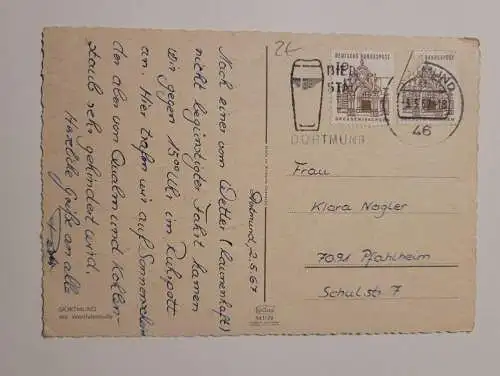 2.-
Dortmund, 2.5.67
Nach einer vom Wetter (launenhaft)
nicht begünstigter Fahrt kamen
wir gegen 15 00 Uhr im Ruhrpott
an. Hier trafen wir auf Sonnenschein
der aber von Qualm und Kohlen-
staub sehr gehindert wird.
Herzliche Grüße an alle
DORTMUND
mit Westfalenhalle
DEUTSCHE BUNDESPOST
DEUTSCHE BUNDESPOST
BIER
STADT
DORTMUND
46
Frau
Klara Nagler
7091 Pfahlheim
Schulstr 7